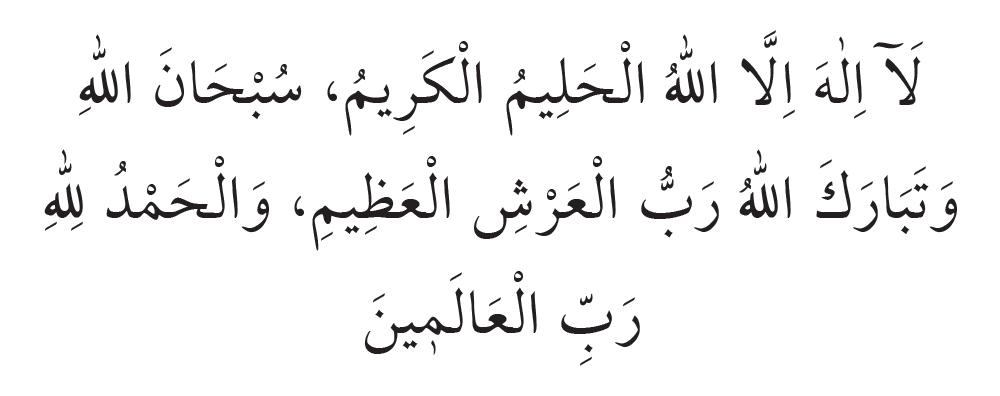 لَآ اِلٰهَ اِلَّا اللّٰهُ الْحَلِيمُ الْكَرِيمُ، سُبْحَانَ اللّٰهِ
وَتَبَارَكَ اللّٰهُ رَبُّ الْعَرْشِ الْعَظِيمِ، وَالْحَمْدُ لِلّٰهِ
رَبِّ الْعَالَمٖينَ